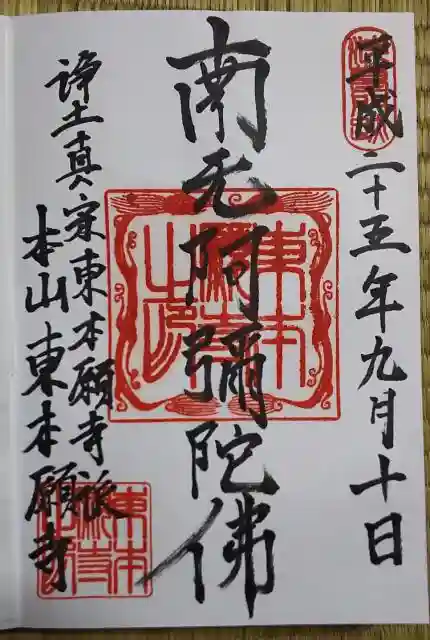 平成二十五年九月十日
南无阿彌陀佛
浄土真宗東本願寺派
本山東本願寺
東本願寺之印
東本願寺印